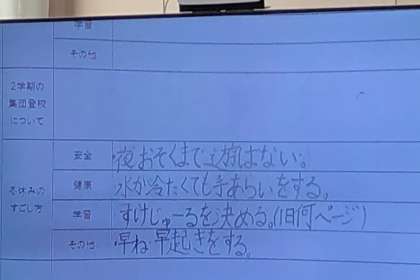 学習
その他
2学期の
集団登校
について
冬休みの
すごし方
安全 夜おそくまで遊ばない。
健康 水が冷たくても手あらいをする。
学習 すけじゅーるを決める。(1日何ページ)
その他 早ね早起きをする。